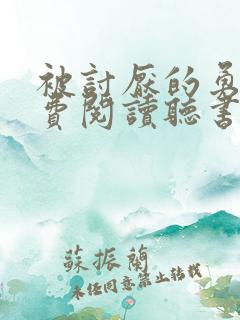 被討厭的勇
費閱讀聽書
蘇振蘭
未经同意禁止转载